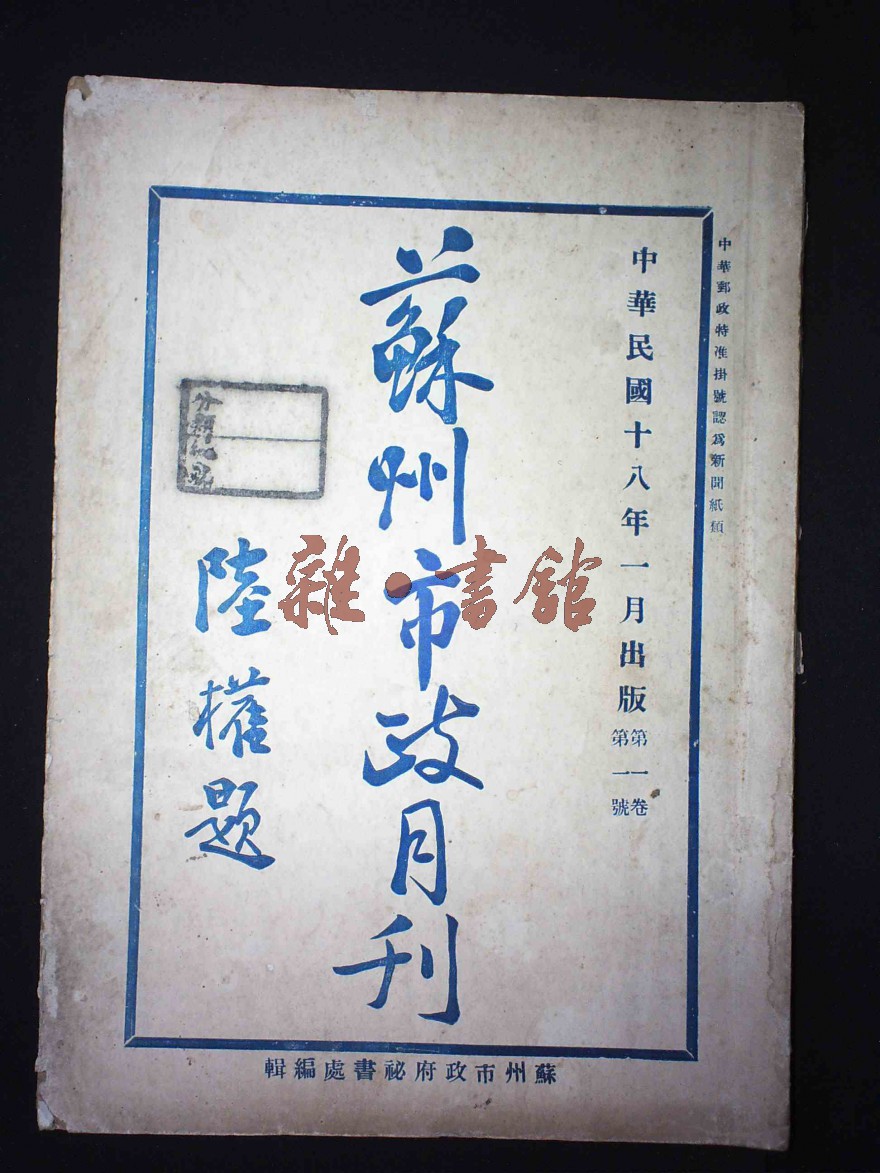 中華郵政特准掛號認為新聞紙類
中華民國十八年一月出版
第一卷
第一號
蘇州市政月刊
陸權題
雜·書館
蘇州市政府祕書處編輯